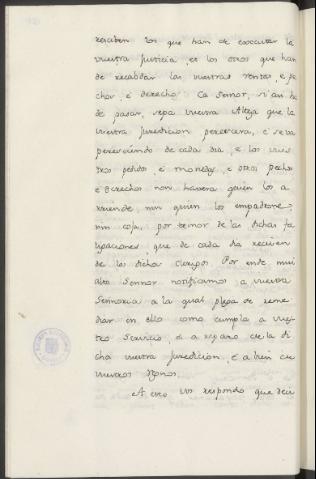 resciben los que han de esecutar la
vuestra justicia, et los otros que han
de recabdar las vuestras rentas, e pe
chos, é derechos. Ca Señor, si an ha
de pasar, sepa vuestra Alteza que la
vuestra juredicion perescera, é se va
peresciendo de cada dia, e los vues
tros pedidos, é monedas, e otros pechos
é derechos non havera quien los a
rriende, nin quien los empadrone,
nin coja, por temor de las dichas fa
tigaciones, que de cada dia reciven
de los dichos clerigos. Por ende mui
alto Sennor notificamos a vuestra
Sennoria a la qual plega de reme
diar en ello como cumpla a vues
tro servicio, é a reparo de la di
cha vuestra juredicion, é a bien de
vuestros Regnos.
A esto vos respondo que decis